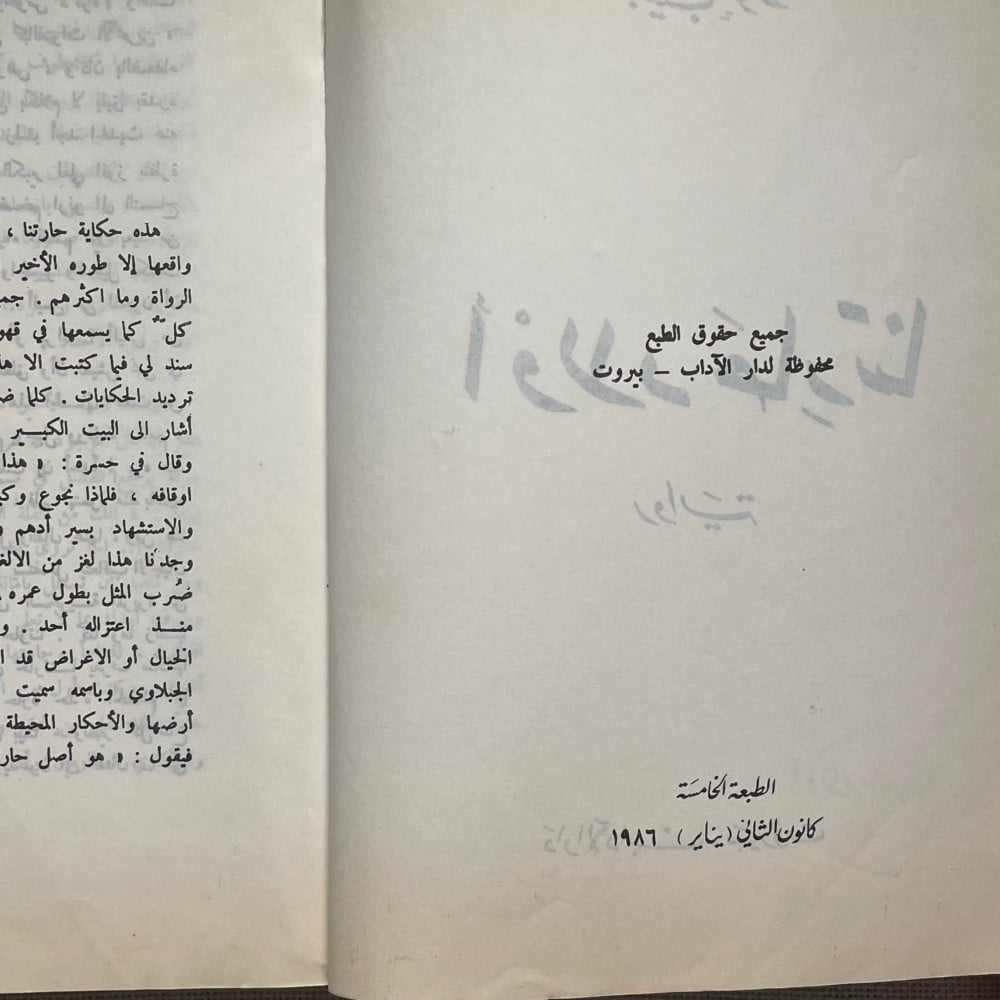 جميع حقوق الطبع
محفوظة لدار الآداب – بيروت
الطبعة الخامسة
كانون الثاني (يناير) ١٩٨٦
هذه حكاية حارتنا ،
واقعها إلا طوره الأخير
الرواة وما اكثرهم . جمي
كلٌّ كما يسمعها في قهو
سند لي فيما كتبت الا هذ
ترديد الحكايات . كلما ض
أشار الى البيت الكبير
وقال في حسرة : « هذا
اوقافه ، فلماذا نجوع وكي
والاستشهاد بسير أدهم و
وجدنا هذا لغز من الالغ
ضُرب المثل بطول عمره .
منذ اعتزاله أحد . و
الخيال أو الاغراض قد ا
الجبلاوي وباسمه سميت
أرضها والأحكار المحيطة
فيقول : « هو أصل حار